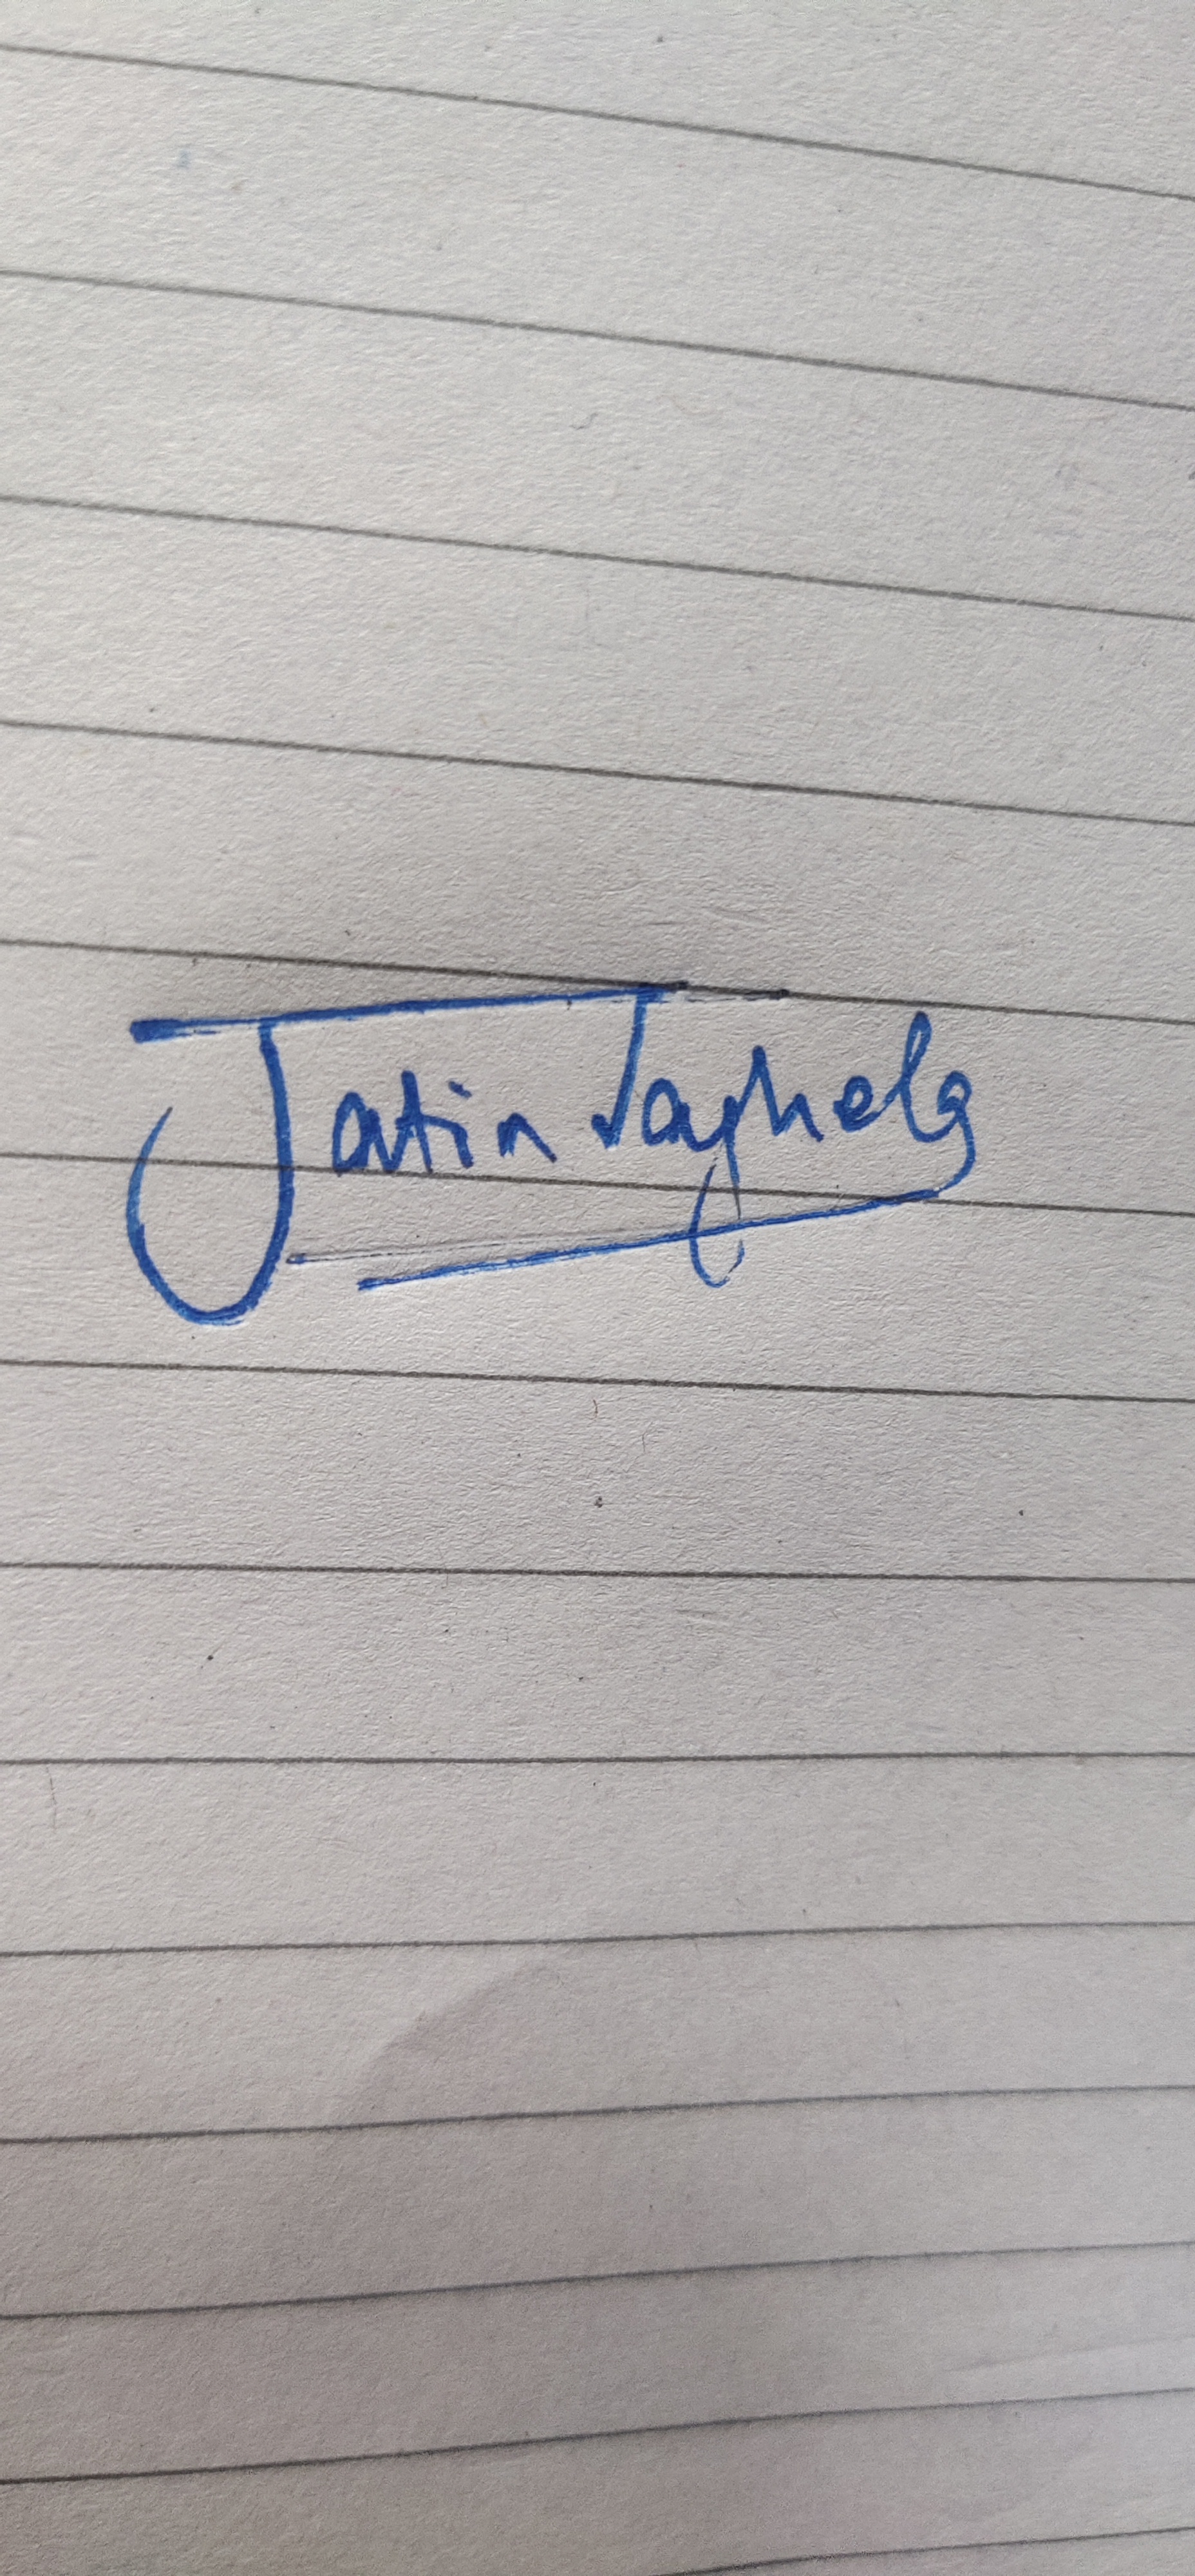 Jatin Vaghela